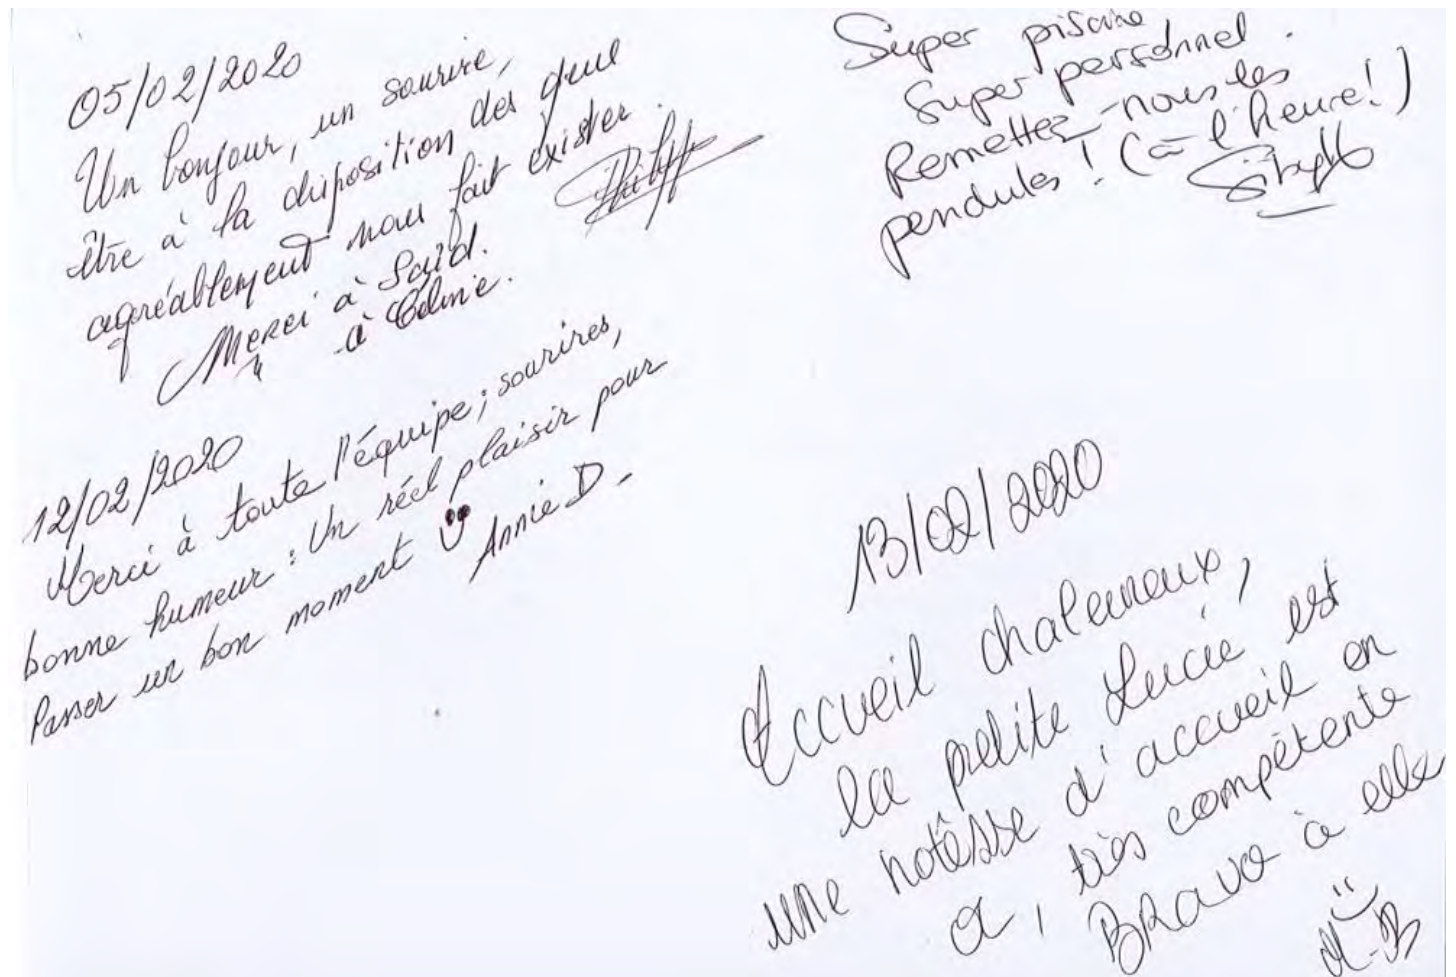 05/02/2020
Un bonjour, un sourire,
être à la disposition des
agréablement nous fait exister.
Merci à Saïd.
" à Céline.
12/02/2020
Merci à toute l'équipe ; sourires,
bonne humeur : Un réel plaisir pour
Passer un bon moment
Annie D.
Super piscine
Super personnel.
Remettez-nous les
pendules ! (à l'heure !)
13/02/2020
Accueil chaleureux,
la petite Lucie est
une hotêsse d'accueil en
or, très compétente
BRavo à elle